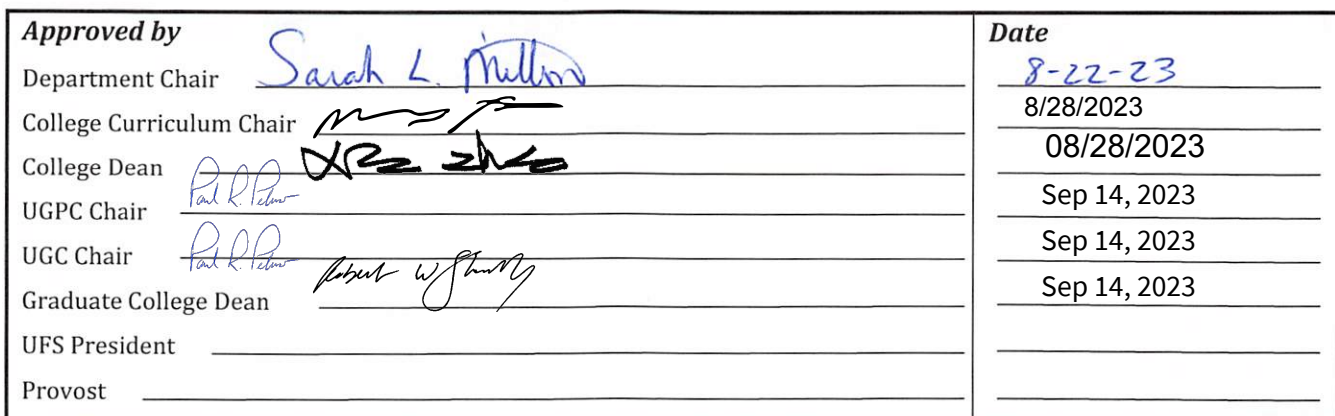 Approved by Date
Department Chair Sarah L. 8-22-23
College Curriculum Chair 8/28/2023
College Dean 08/28/2023
UGPC Chair Paul R. Sep 14, 2023
UGC Chair Paul R. Sep 14, 2023
Graduate College Dean Robert W Sep 14, 2023
UFS President
Provost